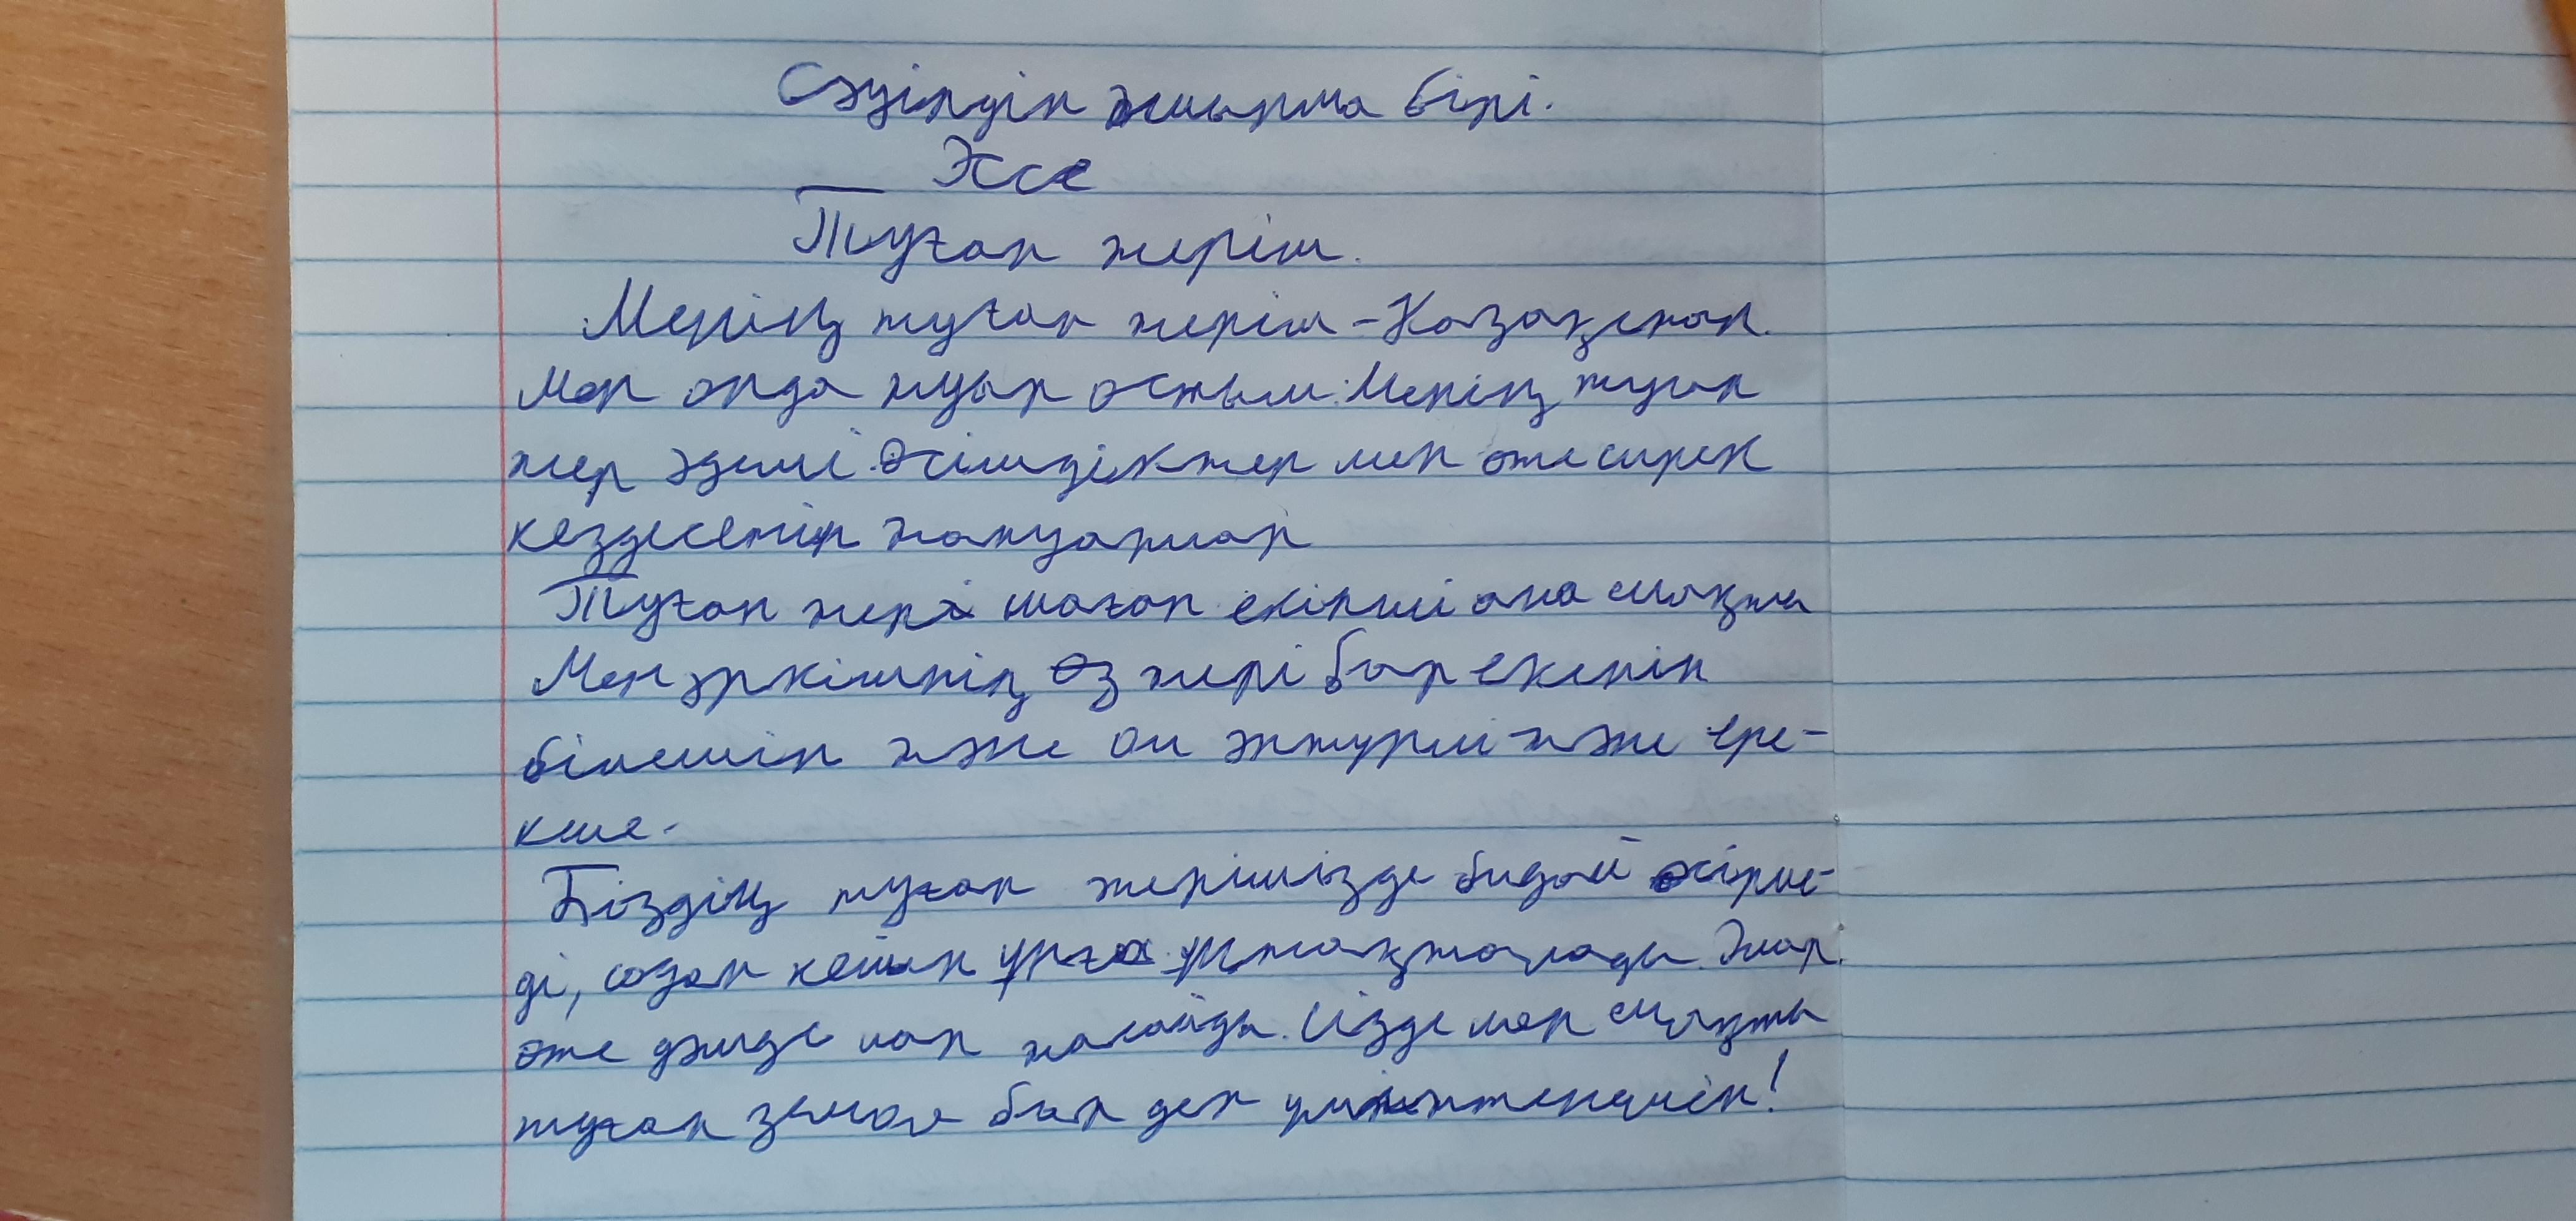 Сәуірдін жиырма бірі.
Эссе
Туған жерім.
Менің туған жерім - Казақстан.
Мен онда туып өстым. Менің туған
жер әдемі. Өсімдіктер мен өте сирек
кездесетін жануарлар
Туған жер маған екінші ана сияқты
Мен әркімнің өз жері бар екенін
білемін және ол әртүрлі және ере-
кше.
Біздің туған жерімізде бидай өсірле-
ді, содан кейін ұнға ұнтақталады. Олар
өте дәмді нан жасайды. Сізде мен сияқты
туған земля бар деп үміттенемін!